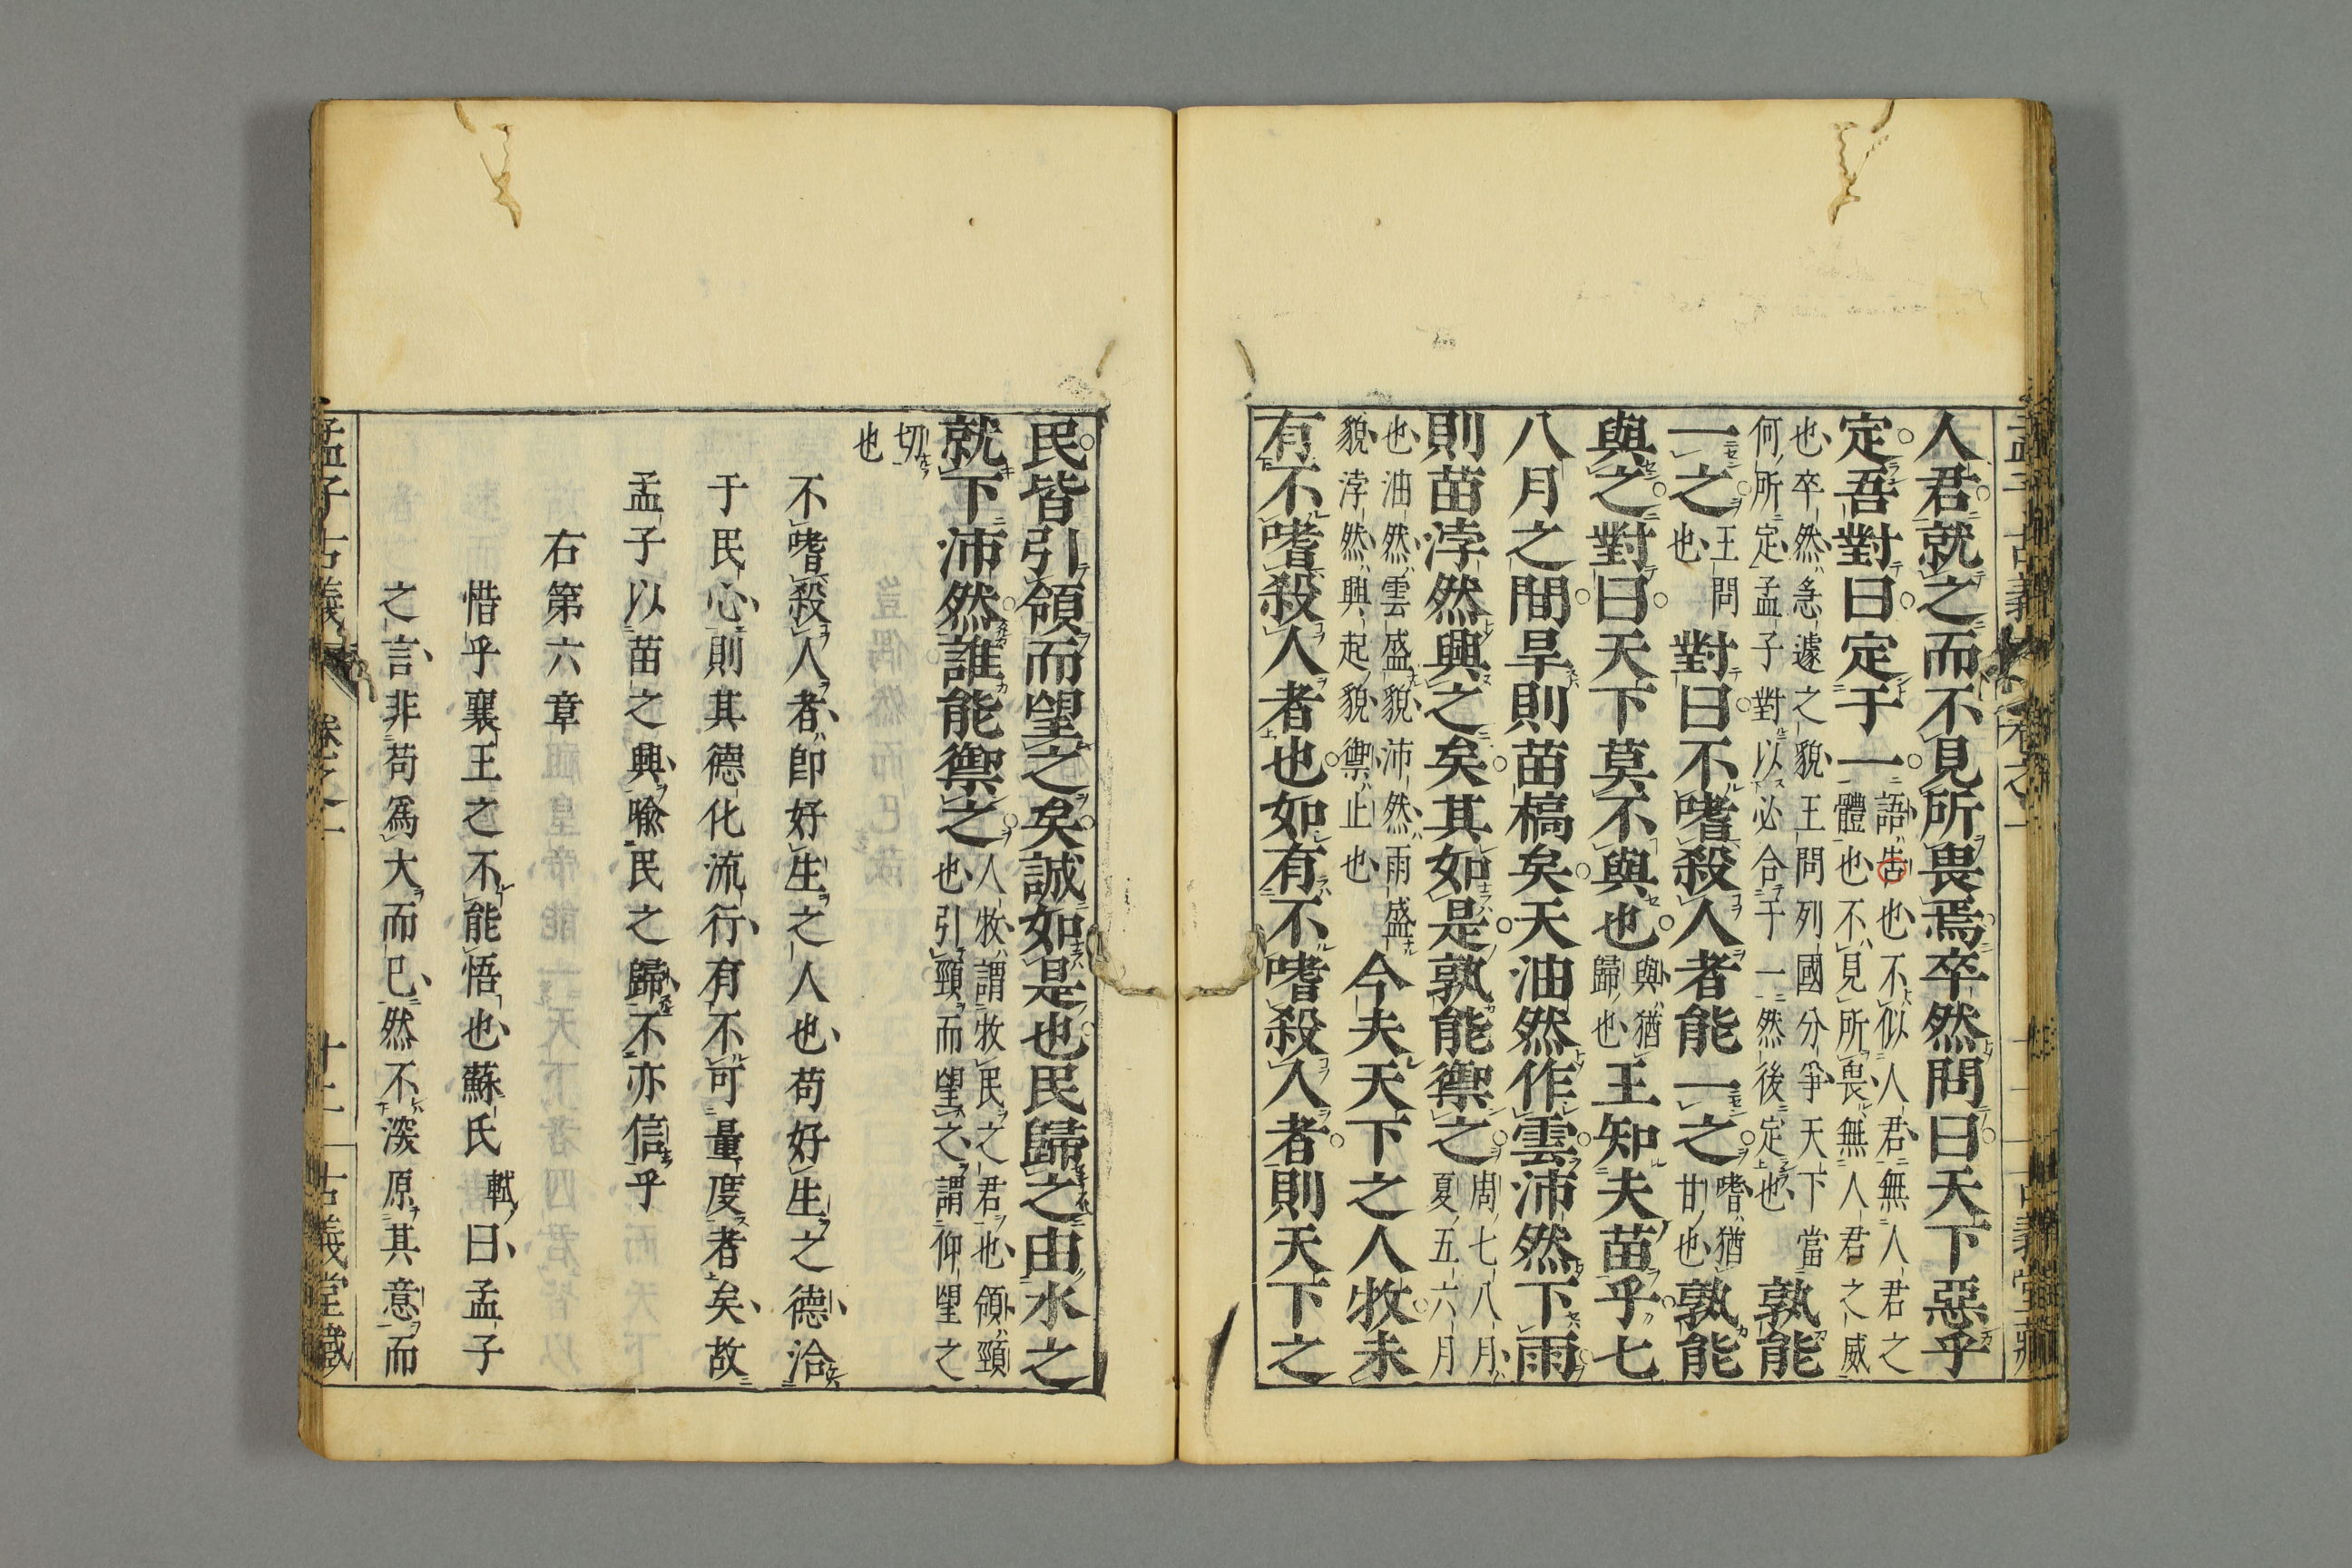 人君就之而不見所畏焉卒然問曰天下惡乎
定吾對曰定于一語告也不似人君無人君之
體也不見所畏無人君之威
也卒然急遽之貌王問列國分爭天下當
何所定孟子對以必合于一然後定也孰能
一之王問
也對曰不嗜殺人者能一之嗜猶
甘也孰能
與之對曰天下莫不與也與猶
歸也王知夫苗乎七
八月之間旱則苗槁矣天油然作雲沛然下雨
則苗浡然興之矣其如是孰能禦之周七八月
夏五六月
也油然雲盛貌沛然雨盛
貌浡然興起貌禦止也今夫天下之人牧未
有不嗜殺人者也如有不嗜殺人者則天下之
民皆引領而望之矣誠如是也民歸之由水之
就下沛然誰能禦之人牧謂牧民之君也領頸
也引頸而望之謂仰望之
切
也
不嗜殺人者即好生之人也苟好生之德洽
于民心則其德化流行有不可量度者矣故
孟子以苗之興喩民之歸不亦信乎
右第六章
惜乎襄王之不能悟也蘇氏軾曰孟子
之言非苟爲大而已然不深原其意而
孟子古義 卷之一 十二 古義堂藏